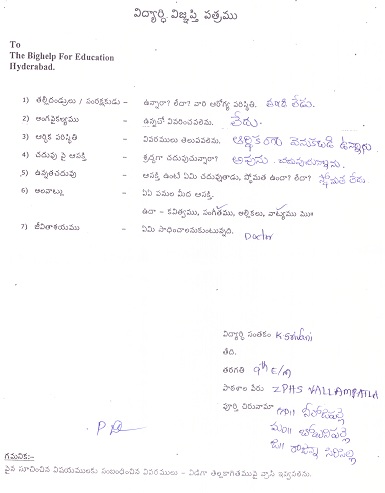 విద్యార్ధి విజ్ఞప్తి పత్రము
To
The Bighelp For Education
Hyderabad.
1) తల్లిదండ్రులు / సంరక్షకుడు - ఉన్నారా? లేదా? వారి ఆరోగ్య పరిస్థితి. తండ్రి లేడు.
2) అంగవైకల్యము - ఉన్నచో వివరించవలెను. లేదు.
3) ఆర్ధిక పరిస్థితి - వివరములు తెలుపవలెను. ఆర్థికంగా వెనుకబడి ఉన్నాను
4) చదువు పై ఆసక్తి - శ్రద్ధగా చదువుచున్నారా? అవును. చదువుచున్నాను.
5) ఉన్నతచదువు - ఆసక్తి ఉంటే ఏమి చదువుతాడు, స్థోమత ఉందా? లేదా? స్థోమత లేదు.
6) అలవాట్లు - ఏఏ పనుల మీద ఆసక్తి.
ఉదా - కవిత్వము, సంగీతము, అల్లికలు, నాట్యము మొ॥
7) జీవితాశయము - ఏమి సాధించాలనుకుంటున్నది. Doctor
విద్యార్ధి సంతకం K
తేది.
తరగతి 9th E/M
పాఠశాల పేరు ZPHS VALLAMPATLA
పూర్తి చిరునామా గ్రా॥
మం॥
జి॥ రాజన్న సిరిసిల్ల
గమనిక:-
పైన సూచించిన విషయములకు సంబంధించిన వివరములు - విడిగా తెల్లకాగితముపై వ్రాసి ఇవ్వవలెను.